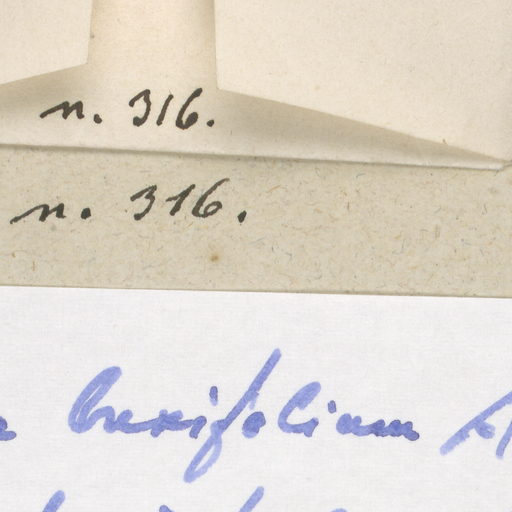 n. 316.
n. 316.
buxifolium